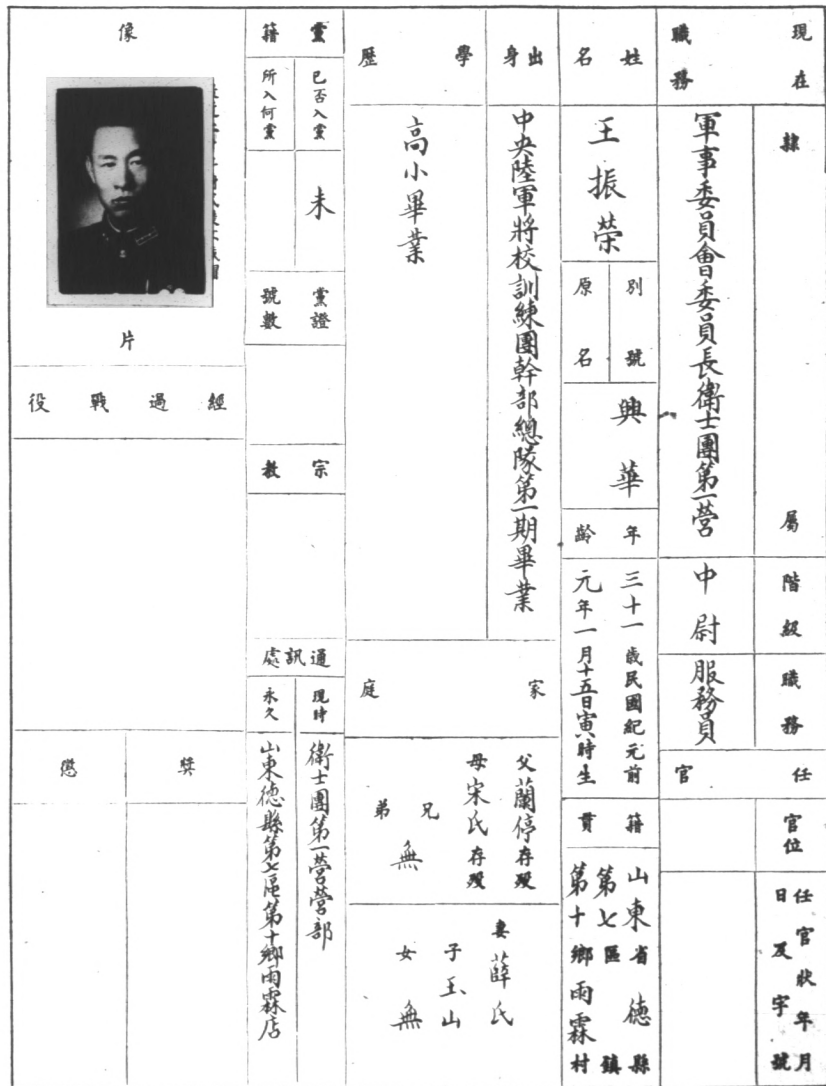 現在職務
隸屬
軍事委員會委員長衛士團第一營
階級
中尉
職務
服務員
任官
官位
任官狀年月日及字號
姓名
王振榮
別號
原名
興華
年齡
三十一歲民國紀元前
元年一月十五日寅時生
籍貫
山東省德縣
第七區鎮
第十鄉雨霖村
出身
中央陸軍將校訓練團幹部總隊第一期畢業
學歷
高小畢業
家庭
父蘭停存歿
母宋氏存歿
兄弟無
妻薛氏
子玉山
女無
黨籍
已否入黨
未
所入何黨
黨證號數
宗教
通訊處
現時
衛士團第一營營部
永久
山東德縣第七區第十鄉雨霖店
像片
經過戰役
獎
懲